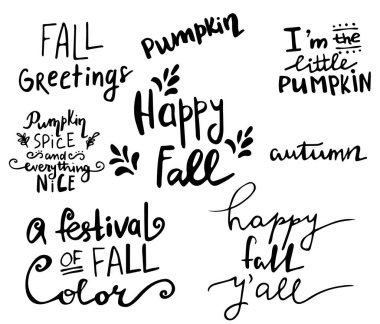 FALL
Greetings
Pumpkin
I'm the
little
PUMPKIN
Happy
Fall
Pumpkin
SPICE
and
everything
NICE
autumn
a festival
OF FALL
Color
happy
fall
y'all